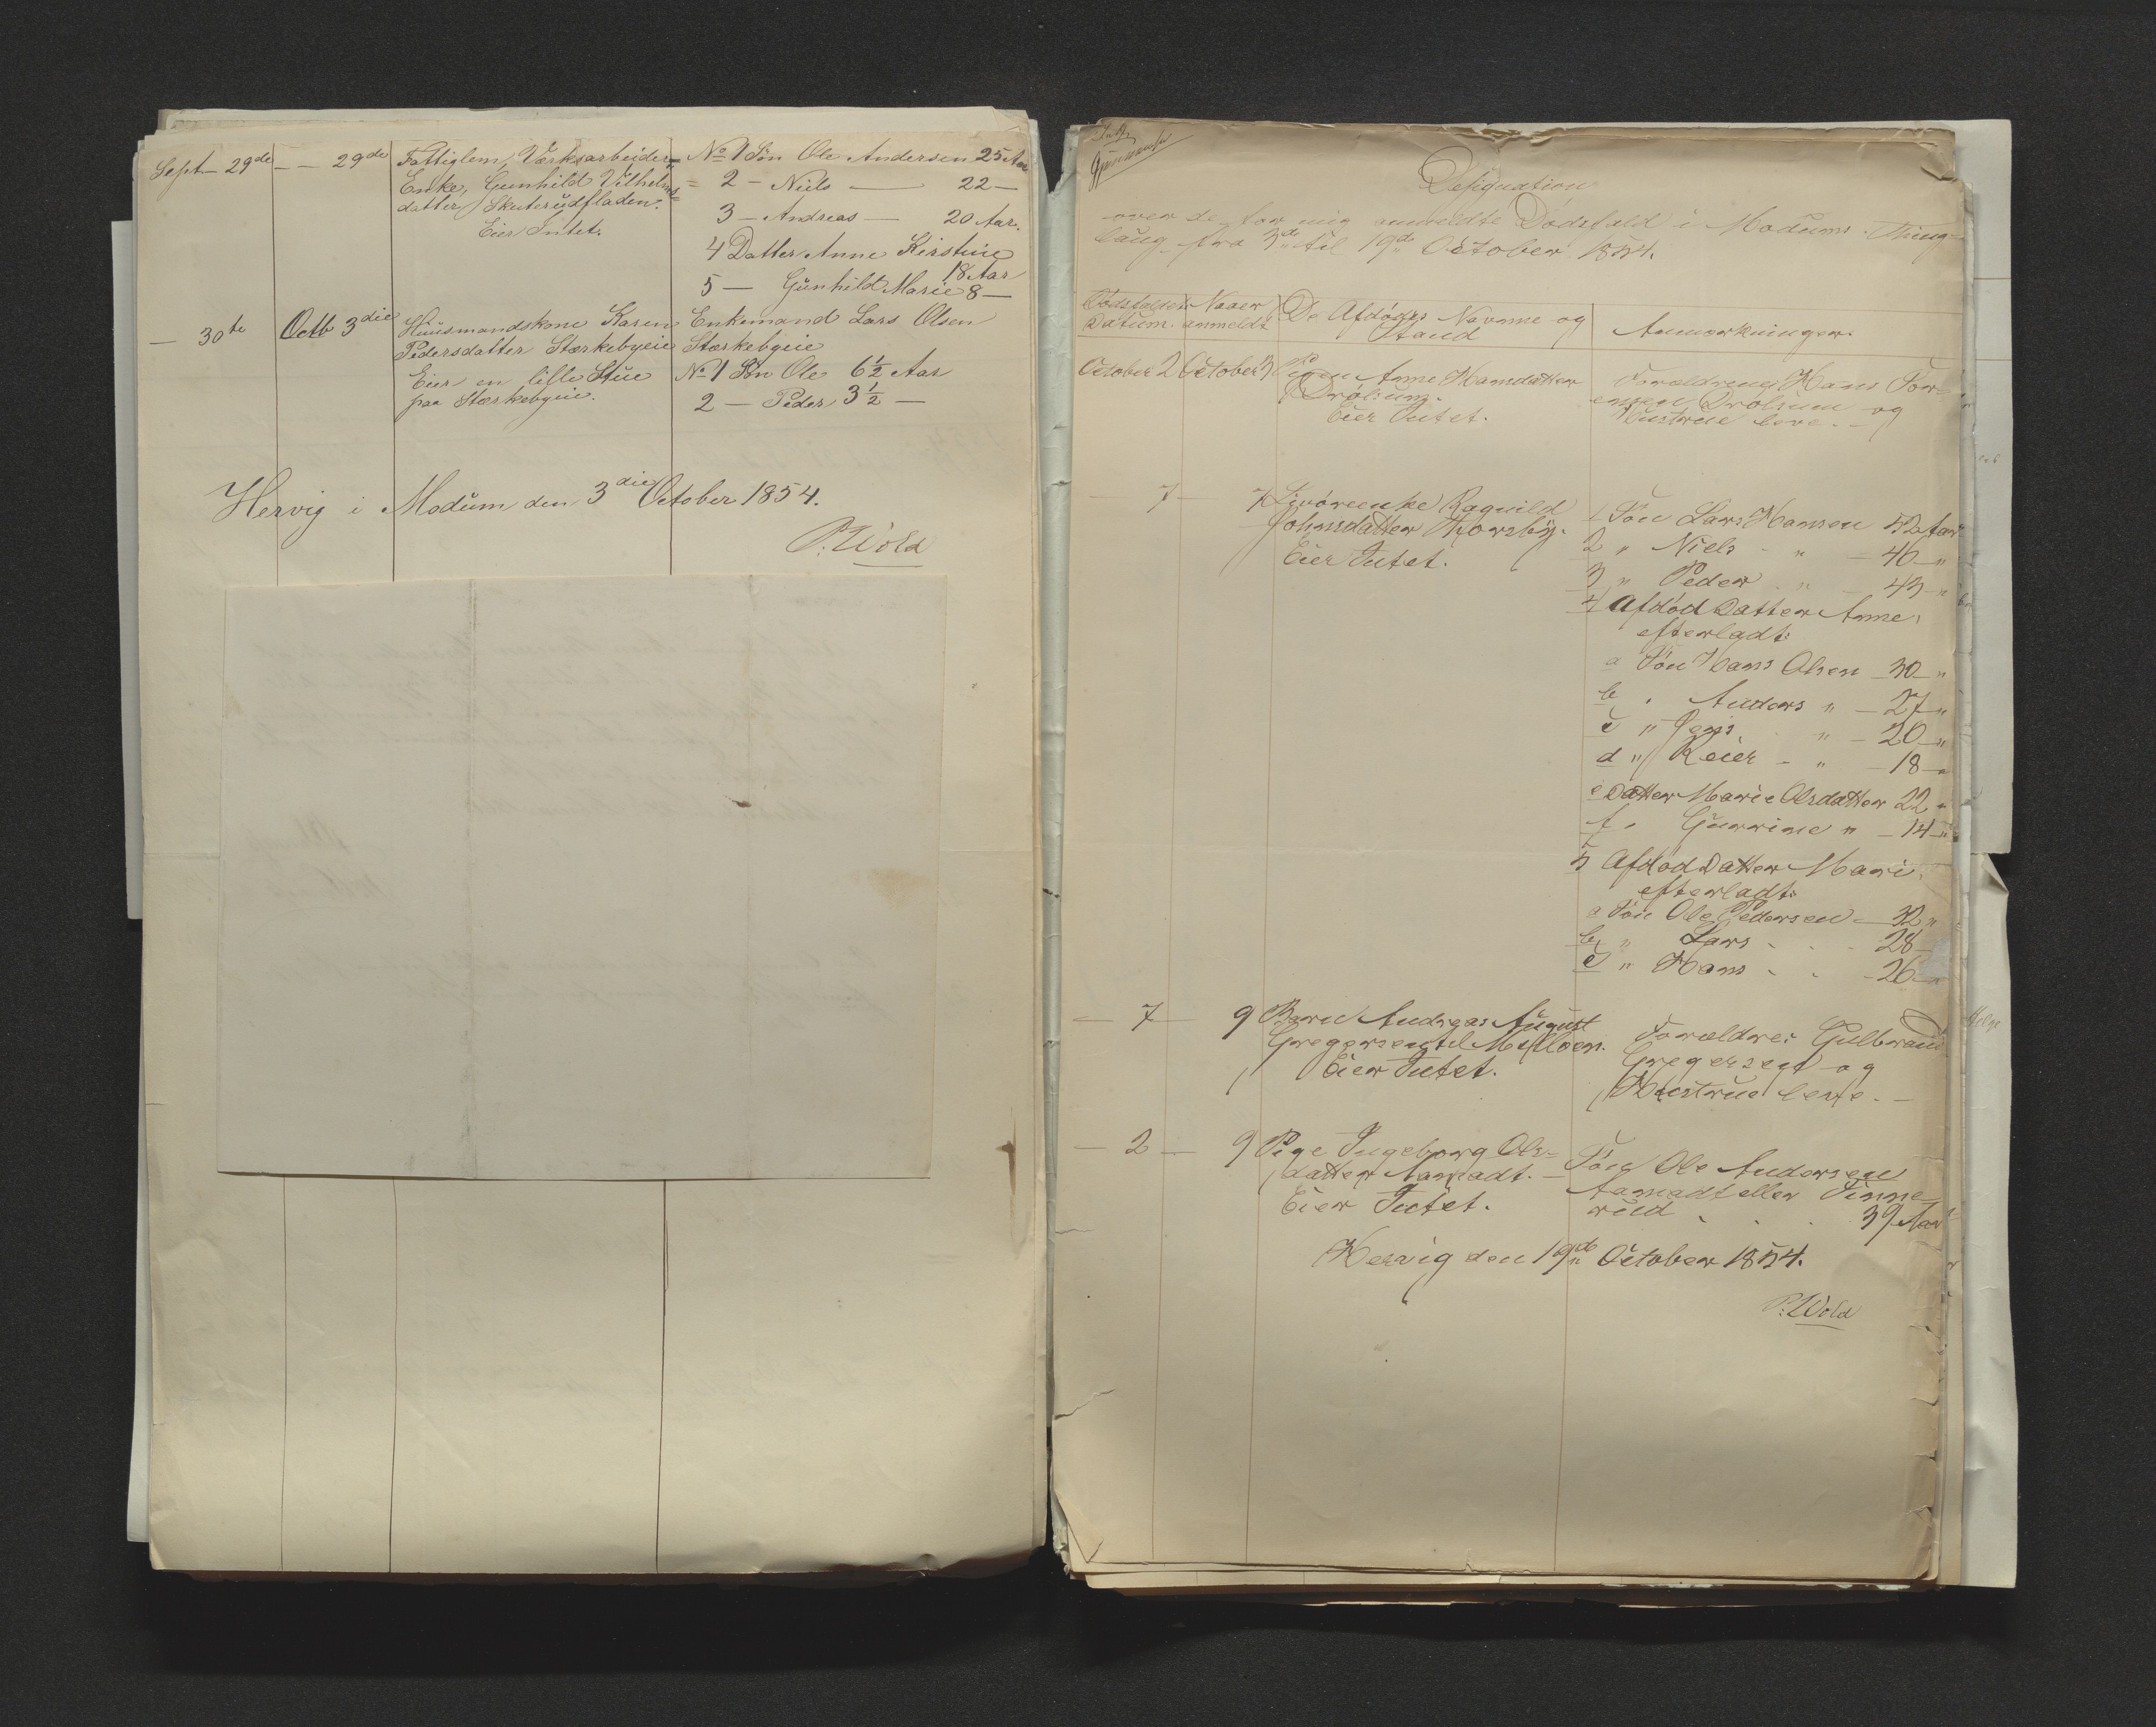 Sept 29de — 29de Fattiglem, Værksarbeider=
Enke, Gunhild Vilhelms=
datter, Skuterudfladen.
Eier Intet.
No 1 Søn Ole Andersen 25 Aar
= 2 — Niils — 22 —
3 — Andreas — 20 Aar.
4 Datter Anne Kirstine
18 Aar
5 — Gunhild Marie 8 —
— 30te Octb 3die Huusmandskone Karen
Pedersdatter Stærkebyeie
Eier en lille Stue
paa Stærkebyeie.
Enkemand Lars Olsen
Stærkebyeie
No 1 Søn Ole 6½ Aar
2 — Peder 3½ —
Hervig i Modum den 3die October 1854.
P. Wold
Designation
over de for mig anmeldte Dødsfald i Modums Thing=
laug fra 3de til 19de October 1854.
Dødsfaldets Datum.
Naaer anmeldt
De Afdødes Navne og
Stand
Anmærkninger.
October 2 October 3 Pigen Anne Hansdatter
Drølsum.
Eier Intet.
Forældrene Hans Tor=
ensen Drolsum og
Hustrue leve. —
— 7 — 7 Livøreenke Ragnild
Johnsdatter Thorsby.
Eier Intet.
1 Søn Lars Hansen 52 Aar
2 " Niels " — 46 — "
3 " Peder " — 43 — "
4 Afdød Datter Anne,
efterladt:
a Søn Hans Olsen — 30 — "
b " Anders " — 27 — "
c " Jens " — 20 — "
d " Reier — " — 18 — "
e Datter Marie Olsdatter 22 "
f " Gurine " — 14 — "
5 Afdød Datter Mari,
efterladt:
a Søn Ole Pedersen — 32 "
b " Lars - - 28 —
c " Hans - - 26 — "
— 7 — 9 Barn Andreas August
Gregersen til Melloen.
Eier Intet.
Forældre: Gulbrand
Gregersen og
Hustrue leve. —
— 2 — 9 Pige Ingeborg Ols=
datter Aamadt. —
Eier Intet.
Søn Ole Andersen
Aamadt eller Finne
rud . . . 39 Aar
Hervig den 19de October 1854.
P. Wold